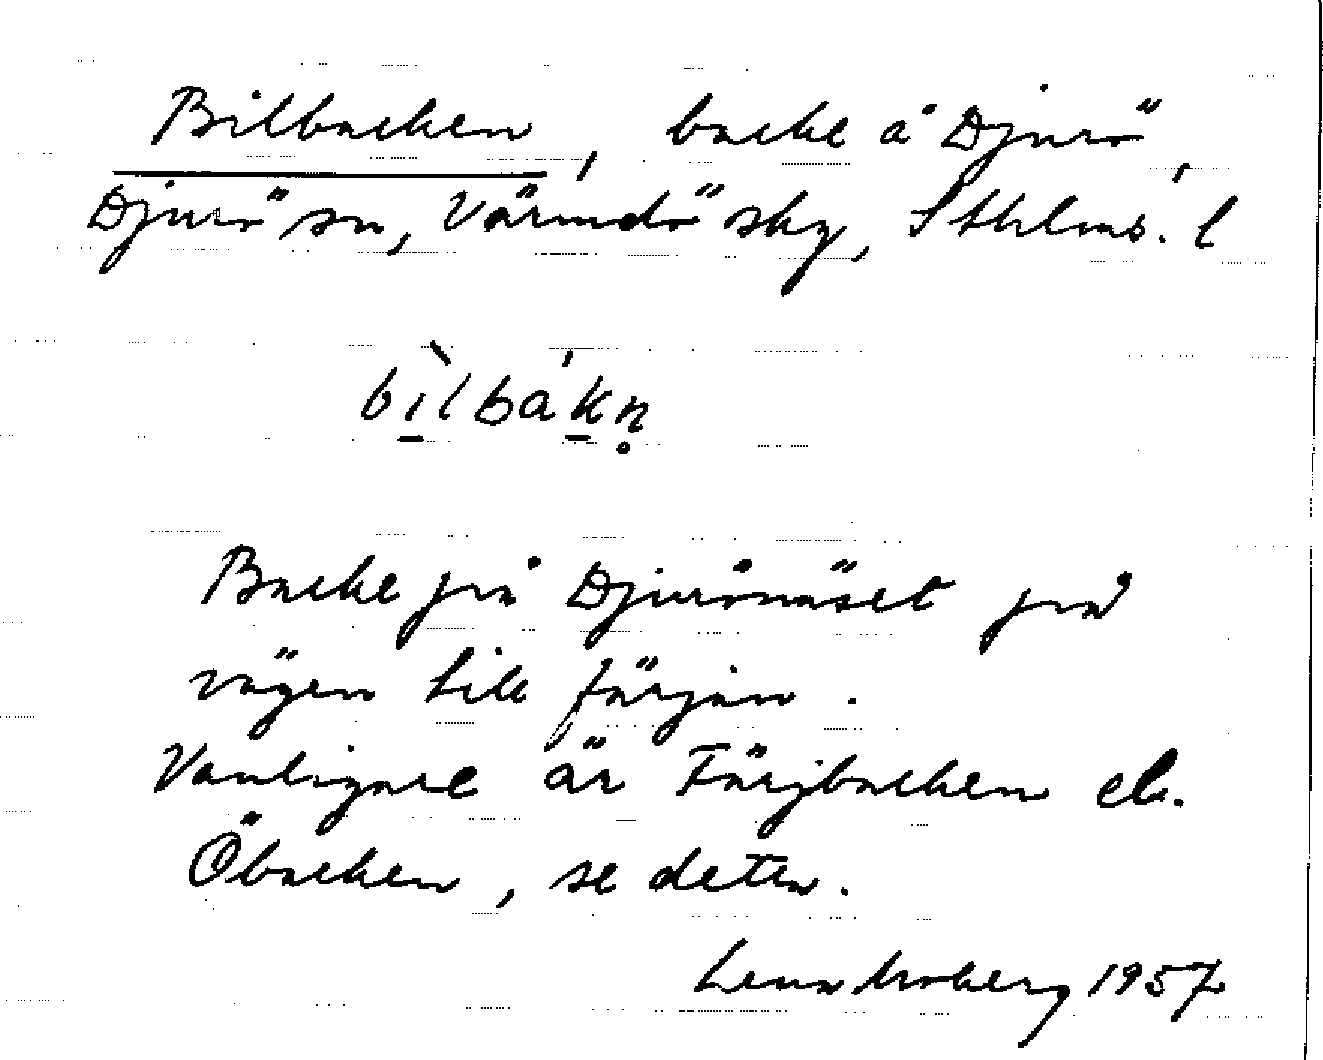 Bilbacken, backe å Djurö,
Djurö sn, Värmdö skg, Sthlms. l
bìlbák̠n̥
Backe på Djurönäset på
vägen till färjan.
Vanligare är Färjbacken el.
Öbacken, se detta.
Lena Moberg 1957